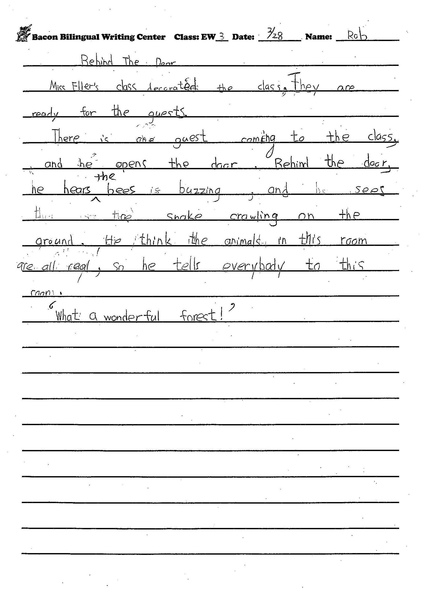 Bacon Bilingual Writing Center Class: EW 3 Date: 3/28 Name: Rob
Behind The Door
Miss Eller's class decorated the class. They are
ready for the guests.
There is one guest coming to the class,
and he opens the door. Behind the door,
he hears the bees is buzzing, and he sees
snake crawling on the
ground. He think the animals in this room
are all real, so he tells everybody to this
room.
"What a wonderful forest!"